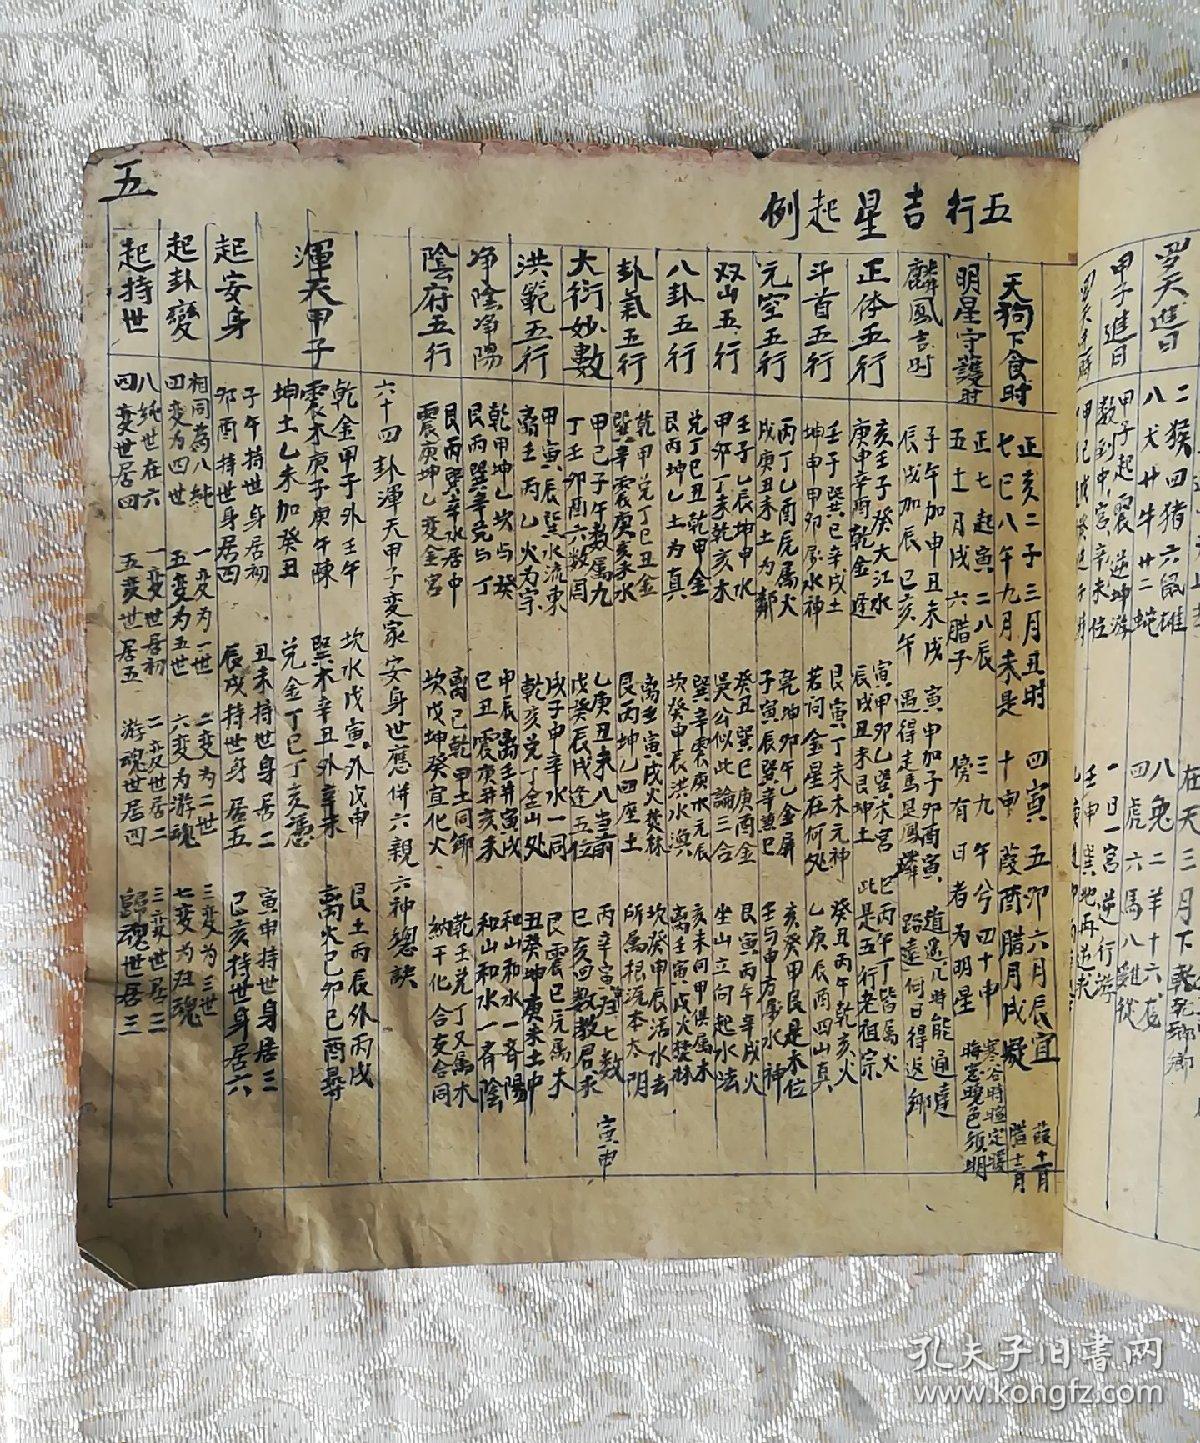 五行吉星起例
五
天狗下食时
正亥二子三月丑时 四寅五卯六月辰宜
七巳八午九月未是 十申葭酉腊月戌凝
葭十一月
腊十二月
明星守護时
正七起寅二八辰 三九午兮四十申
五十一月戌六腊子 傍有日者为明星
麟鳳吉时
子午加申丑未戌 寅申加子卯酉寅
辰戌加辰巳亥午 遇得走馬是鳳麟
道遠几时能通達
路遠何日得返鄉
正体五行
亥壬子癸大江水 寅甲卯乙巽木宮 巳丙午丁皆属火
庚申辛酉乾金逢 辰戌丑未艮坤土 此是五行老祖宗
斗首五行
壬子巽巳辛戌土 艮寅丁未木元神 癸丑丙午乾亥火
坤申甲卯属水神 若问金星在何处 乙庚辰酉四山真
元空五行
丙丁乙酉原属火 乾坤卯午乙金屏 亥癸甲艮是木位
戌庚丑未土为鄰 子寅辰巽辛兼巳 壬与申方属水神
双山五行
壬子乙辰坤申水 癸丑巽巳庚酉金 艮寅丙午辛戌火
甲卯丁未乾亥木 吴公似此論三合 坐山立向起水法
八卦五行
兑丁巳丑乾甲金 巽辛震庚水元辰 亥未同甲俱属木
艮丙坤乙土为真 坎癸申辰洪水溟 离壬寅戌火焚林
卦氣五行
乾甲兑丁巳丑金 离壬寅戌火焚林 坎癸申辰活水去
巽辛震庚亥未水 艮丙坤乙四座土 所属根流本太阴
大衍妙數
甲己子午数属九 乙庚丑未八当前 丙辛寅申归七数
丁壬卯酉六数周 戊癸辰戌逢五位 巳亥四数教君求
寅申
洪範五行
甲寅辰巽水流東 戌子申辛水一同 艮震巳元属木
离壬丙乙火为宗 乾亥兑丁金山处 丑癸坤庚未土中
净陰净陽
乾甲坤乙坎与癸 申辰离壬并寅戌 和山和水一斉陽
艮丙巽辛兑与丁 巳丑震庚并亥未 和山和水一斉陰
陰府五行
艮丙巽辛水居中 离己乾甲土同鄉 乾壬兑丁又属木
震庚坤乙变金宮 坎戊坤癸宜化火 納干化合友合同
六十四卦渾天甲子変家安身世應併六親六神總訣
渾天甲子
乾金甲子外壬午 坎水戊寅外戊申 艮土丙辰外丙戌
震木庚子庚午陳 巽木辛丑外辛未 离火己卯己酉尋
坤土乙未加癸丑 兑金丁巳丁亥憑
起安身
子午持世身居初 丑未持世身居二 寅申持世身居三
卯酉持世身居四 辰戌持世身居五 巳亥持世身居六
起卦變
相同为八純 一变为一世 二变为二世 三变为三世
四变为四世 五变为五世 六变为游魂 七变为归魂
起持世
八純世在六 一变世居初 二变世居二 三变世居三
四变世居四 五变世居五 游魂世居四 歸魂世居三
甲子進日
二猴四猪六鼠雄
八犬廿牛廿二蛇
八兔二羊十六龙
四虎六馬八雞從
甲子起震逆坤游
数到中宮辛未位
一日一宮逆行游
孔夫子旧书网
www.kongfz.com